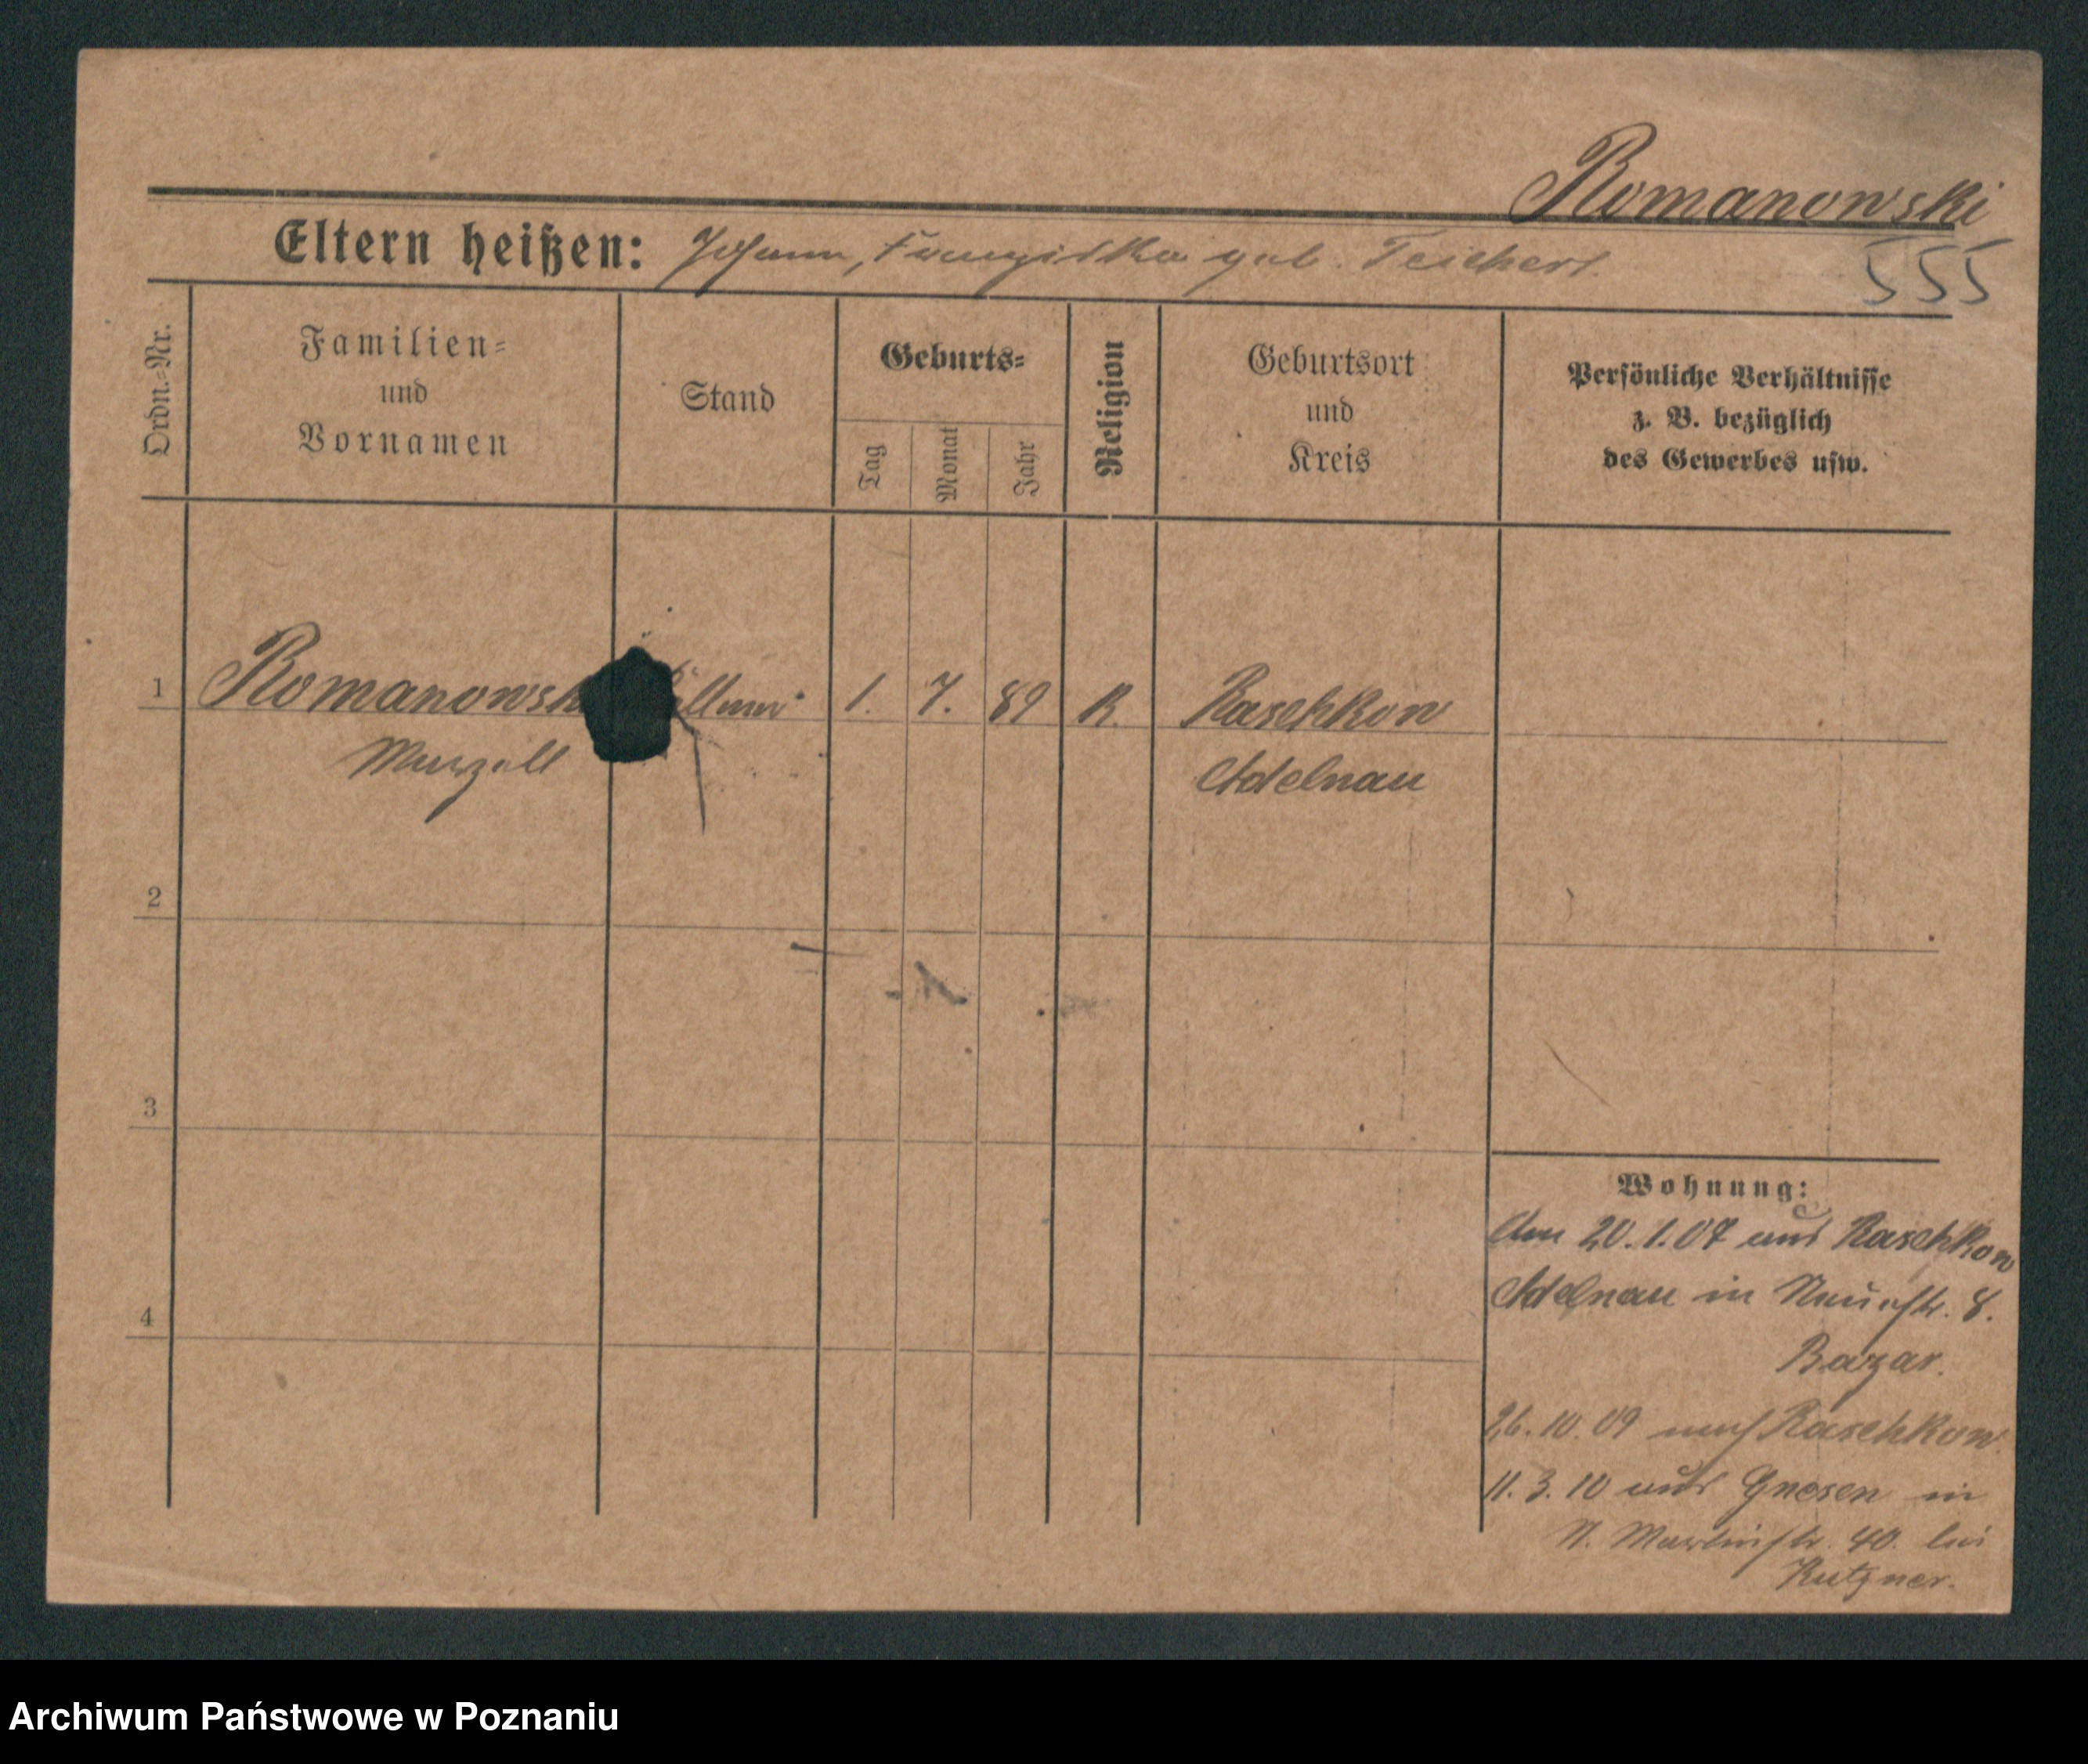 Romanowski
Eltern heißen: Johann, Franziska geb. Teichert.
555
Ordn.-Nr.
Familien-
und
Vornamen
Stand
Geburts-
Tag
Monat
Jahr
Religion
Geburtsort
und
Kreis
Persönliche Verhältnisse
z. B. bezüglich
des Gewerbes usw.
1 Romanowski 1. 7. 89 R. Raschkow
Marzell Adelnau
2
3
4
Wohnung:
Am 20.1.07 aus Raschkow
Adelnau in Neuestr. 8.
Bazar.
26.10.09 nach Raschkow.
11.3.10 aus Gnesen in
St. Martinstr. 40. bei
Kutzner.
Archiwum Państwowe w Poznaniu